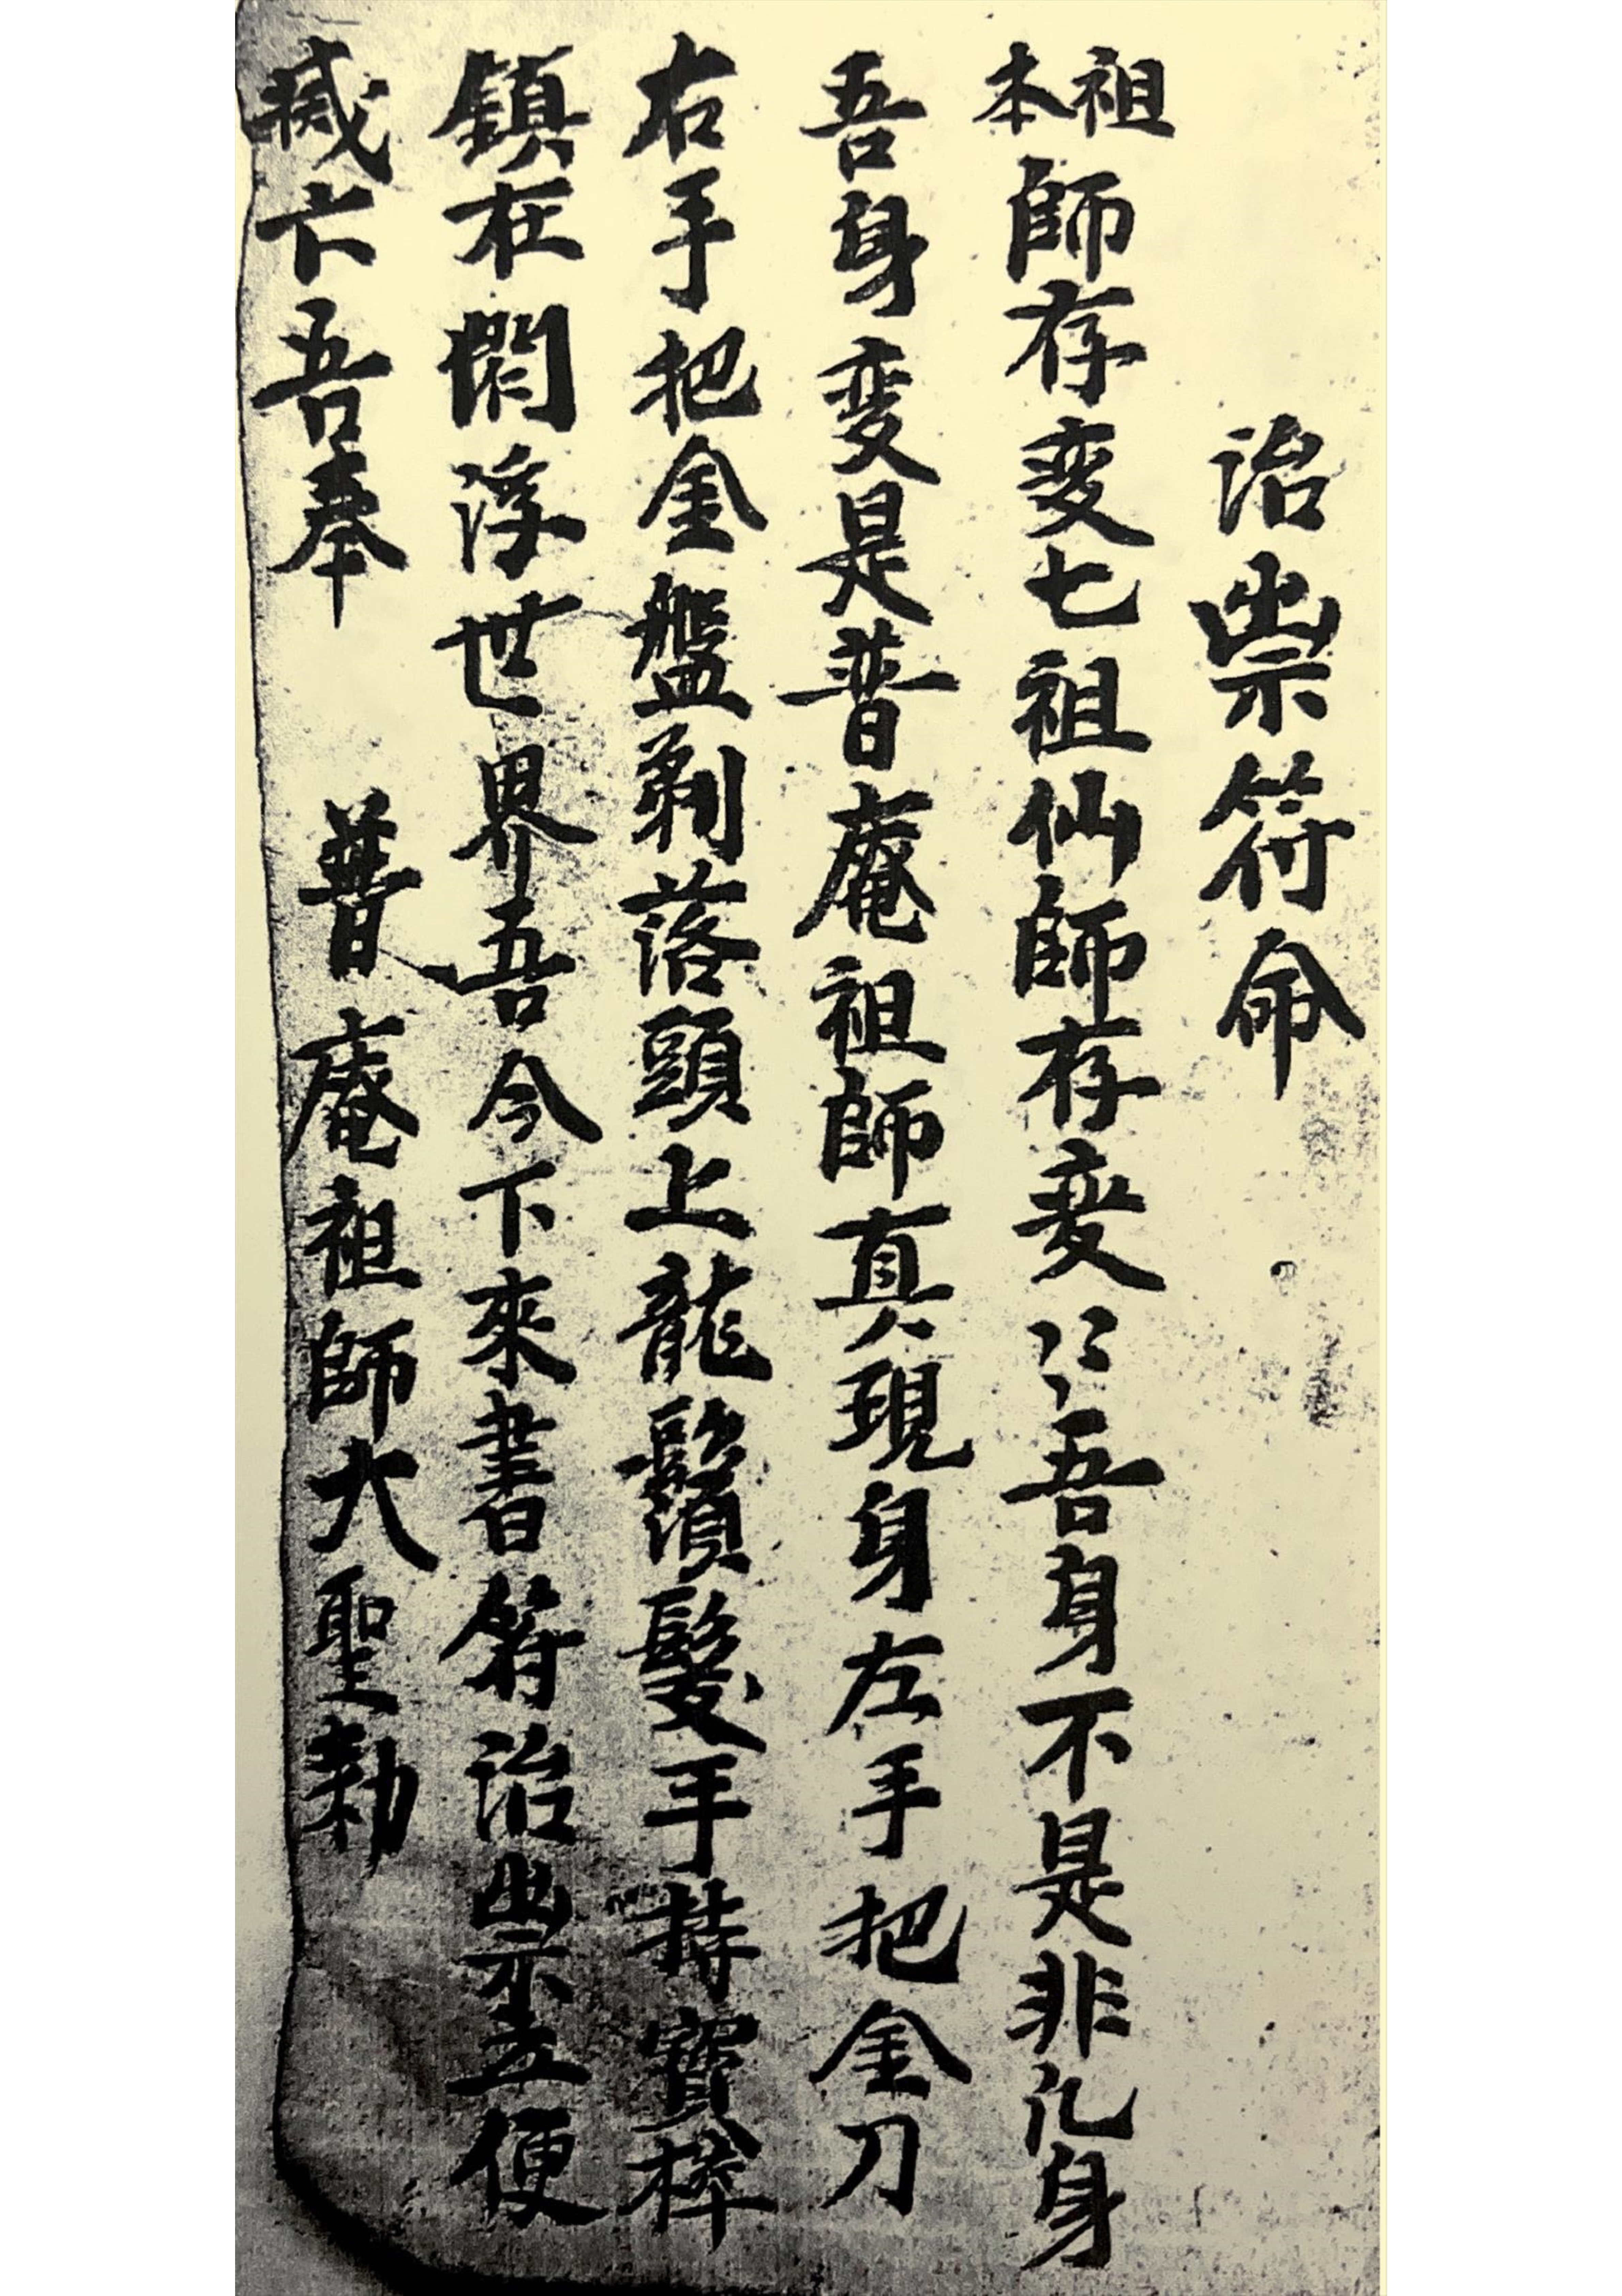 治祟符命
祖本師存変七祖仙師存変〻〻吾身不是非凡身
吾身変是普庵祖師真現身左手把金刀
右手把金盤剃落頭上龍鬚髮手持寶棒
鎮在閻浮世界吾今下來書符治祟立便
滅亡吾奉 普庵祖師大聖勅